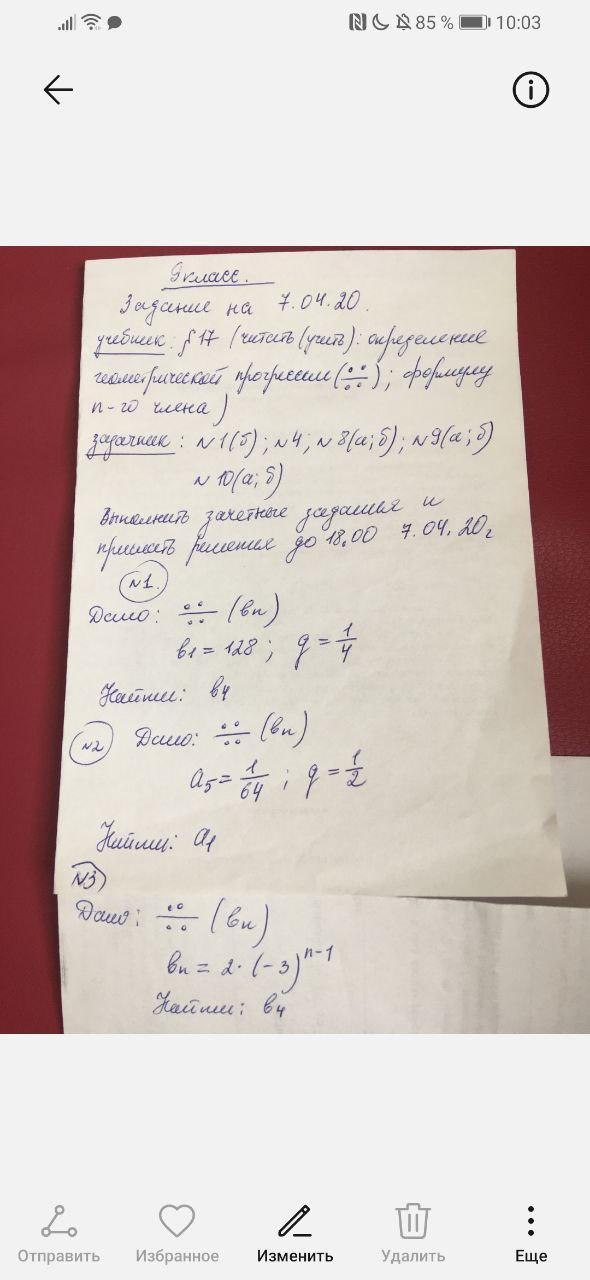 85 % 10:03
9 класс.
Задание на 7.04.20.
учебник: §17 (читать (учить): определение
геометрической прогрессии (∺); формулу
n-го члена)
задачник: №1(б); №4; №8(а;б); №9(а;б)
№10(а;б)
Выполнить зачетные задания и
прислать решения до 18.00 7.04.20г
№1.
Дано: ∺ (bn)
b1 = 128; q = 1/4
Найти: b4
№2 Дано: ∺ (bn)
a5 = 1/64; q = 1/2
Найти: a1
№3
Дано: ∺ (bn)
bn = 2·(-3)^n-1
Найти: b4
Отправить Избранное Изменить Удалить Еще